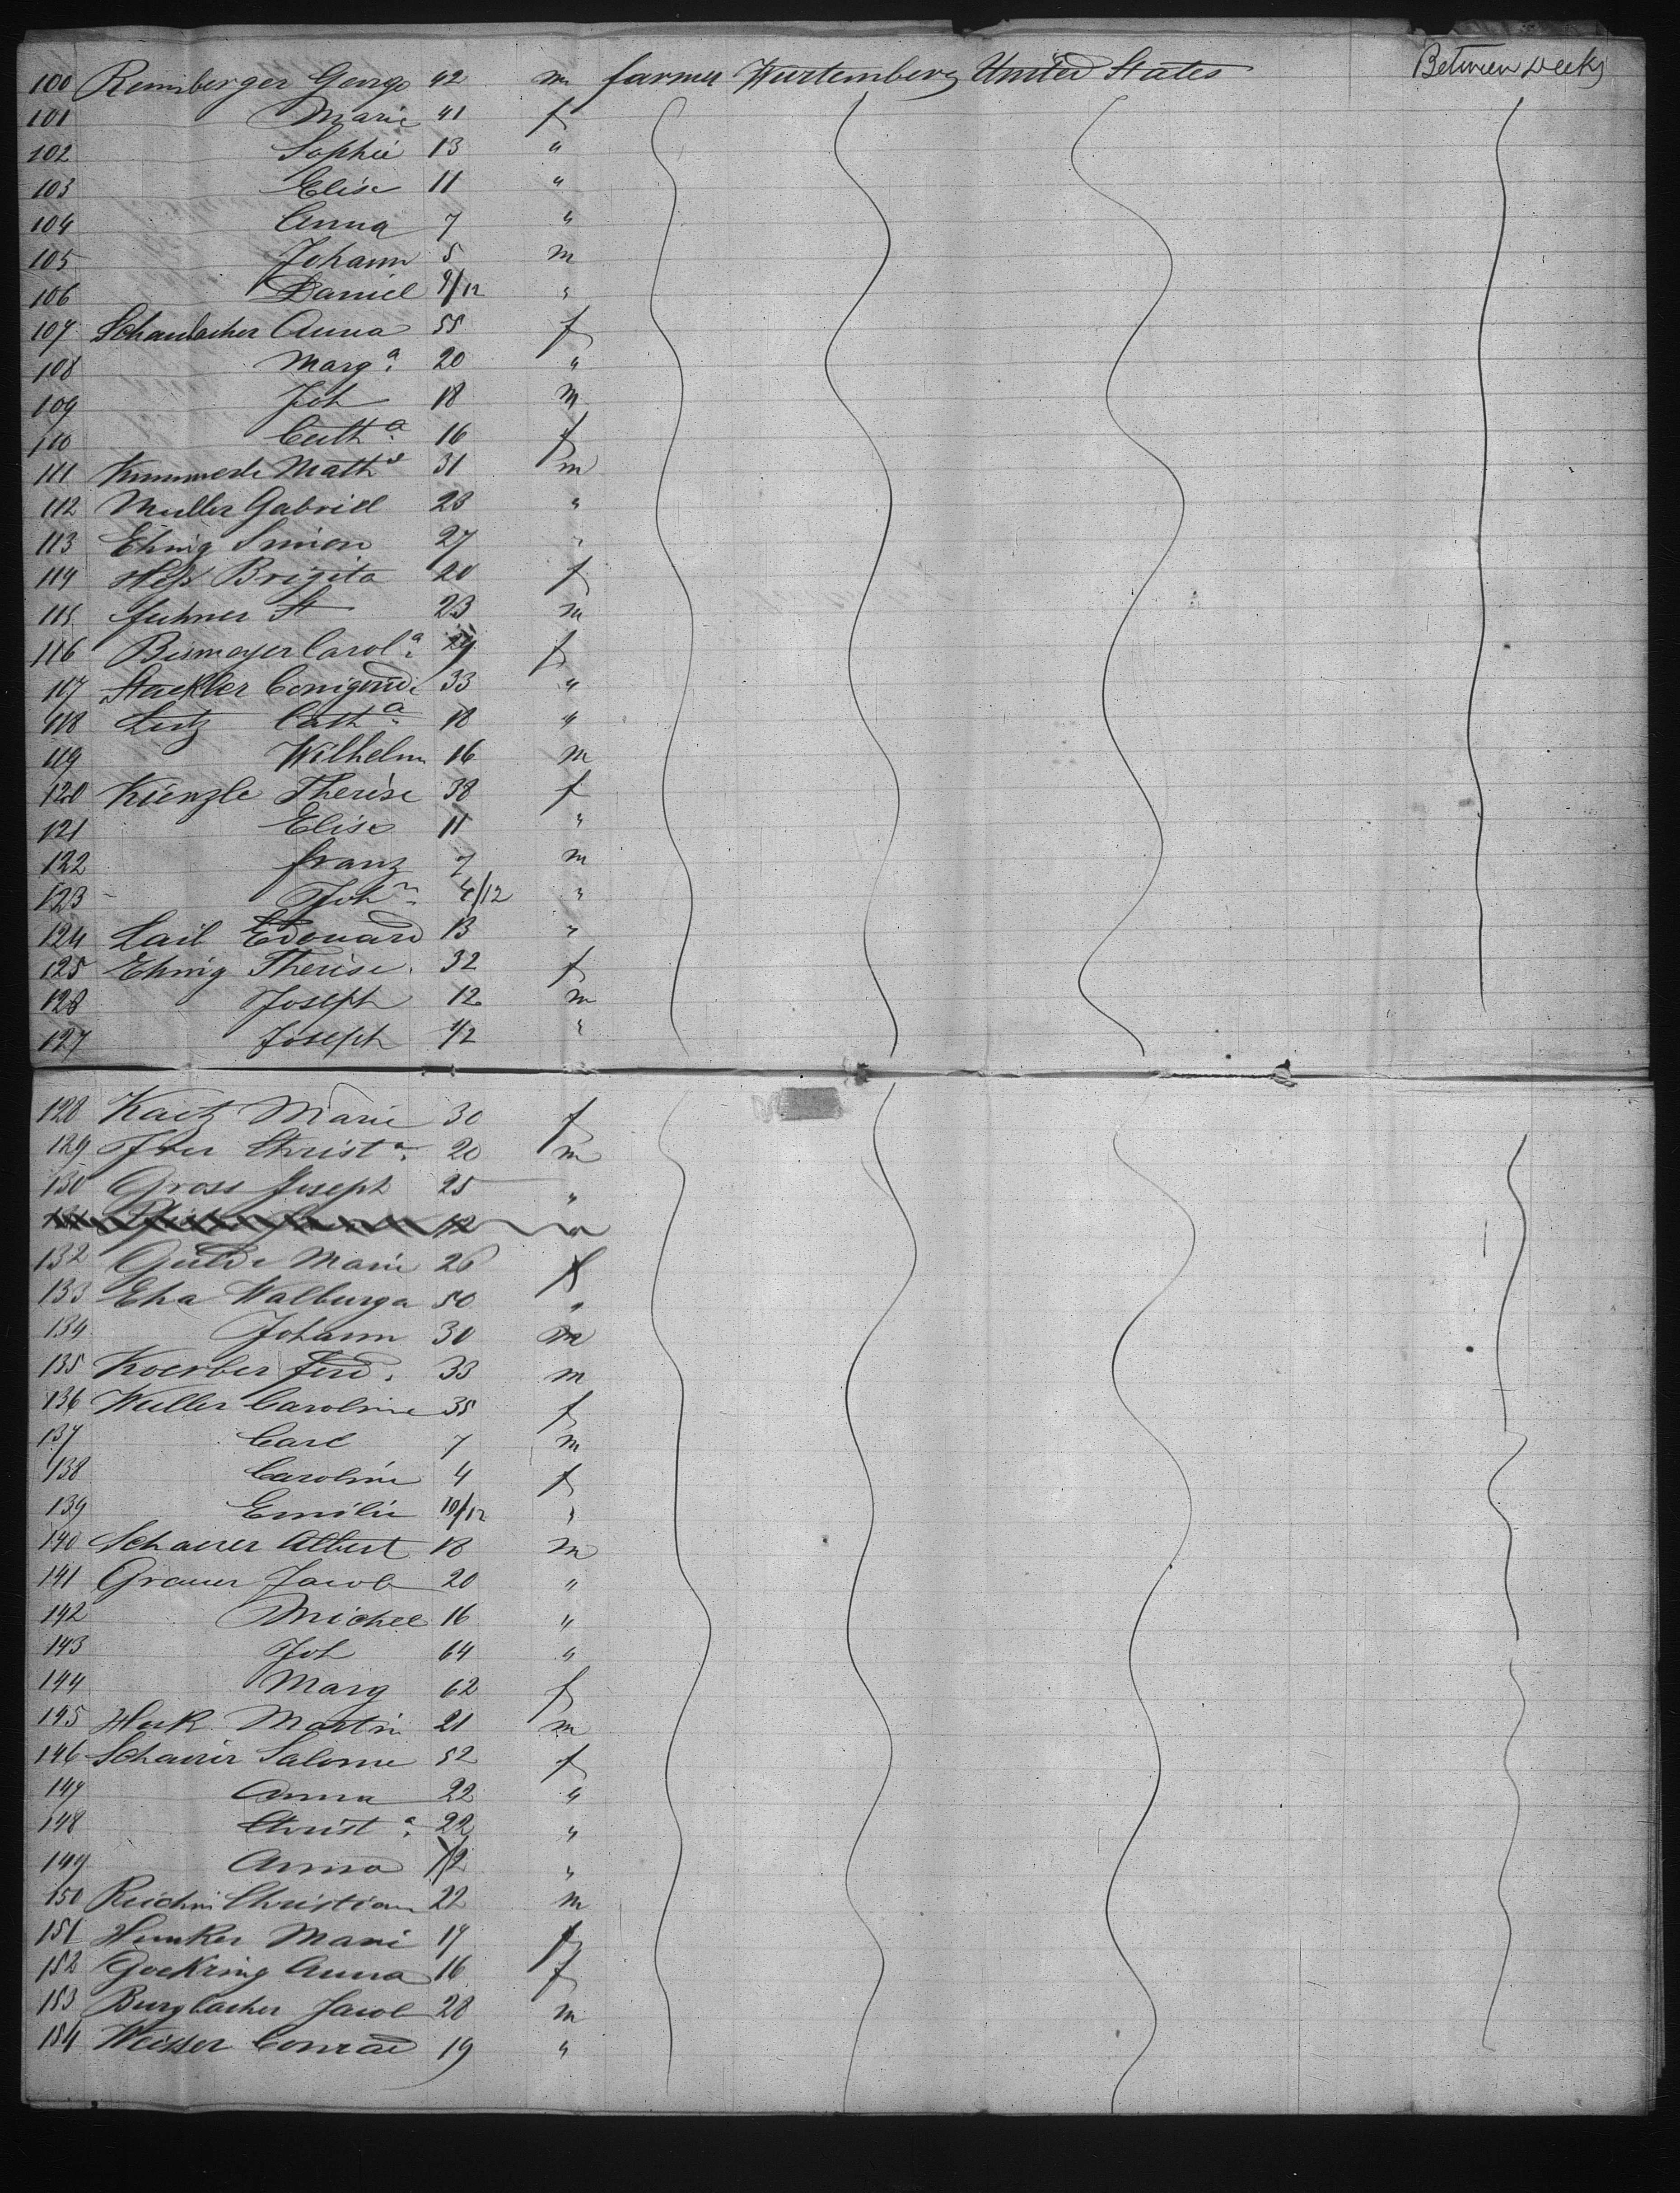 100 Remberger George 42 m farmer Wurtemberg United States Between Decks
101 Marie 41 f
102 Sophie 13 "
103 Elise 11 "
104 Anna 7 "
105 Johann 5 m
106 Daniel 9/12 "
107 Schanbacher Anna 55 f
108 Marg.a 20 "
109 Joh 18 m
110 Cath.a 16 f
111 Kummerle Maths 31 m
112 Muller Gabriel 23 "
113 Ehnig Simon 27 "
114 Hess Brigita 20 f
115 23 m
116 Bismayer Carol.a 29 f
117 Stackler 33 "
118 Lutz Cath.a 18 "
119 Wilhelm 16 m
120 Kienzle Therese 38 f
121 Elise 11 "
122 Franz 7 m
123 Joh.n 4/12 "
124 Lail Edouard 13 "
125 Ehnig Therese 32 f
126 Joseph 12 m
127 Joseph 1/2 "
128 Kaetz Marie 30 f
129 Christ.n 20 m
130 Gross Joseph 25 "
12 "
132 Gulde Marie 26 f
133 Eha Walburga 50 "
134 Johann 30 m
135 Koerber Ferd. 33 m
136 Weller Caroline 35 f
137 Carl 7 m
138 Caroline 4 f
139 Emilie 10/12 "
140 Schaerer Albert 18 m
141 Grauer Jacob 20 "
142 Michel 16 "
143 Joh 64 "
144 Marg 62 f
145 Huk Martin 21 m
146 Schairer Salome 52 f
147 Anna 22 "
148 Christ.a 22 "
149 Anna 1/2 "
150 Christian 22 m
151 Hunker Marie 17 f
152 Goekring Anna 16 f
153 Burgbacher Jacob 28 m
154 Weisser Conrad 19 "